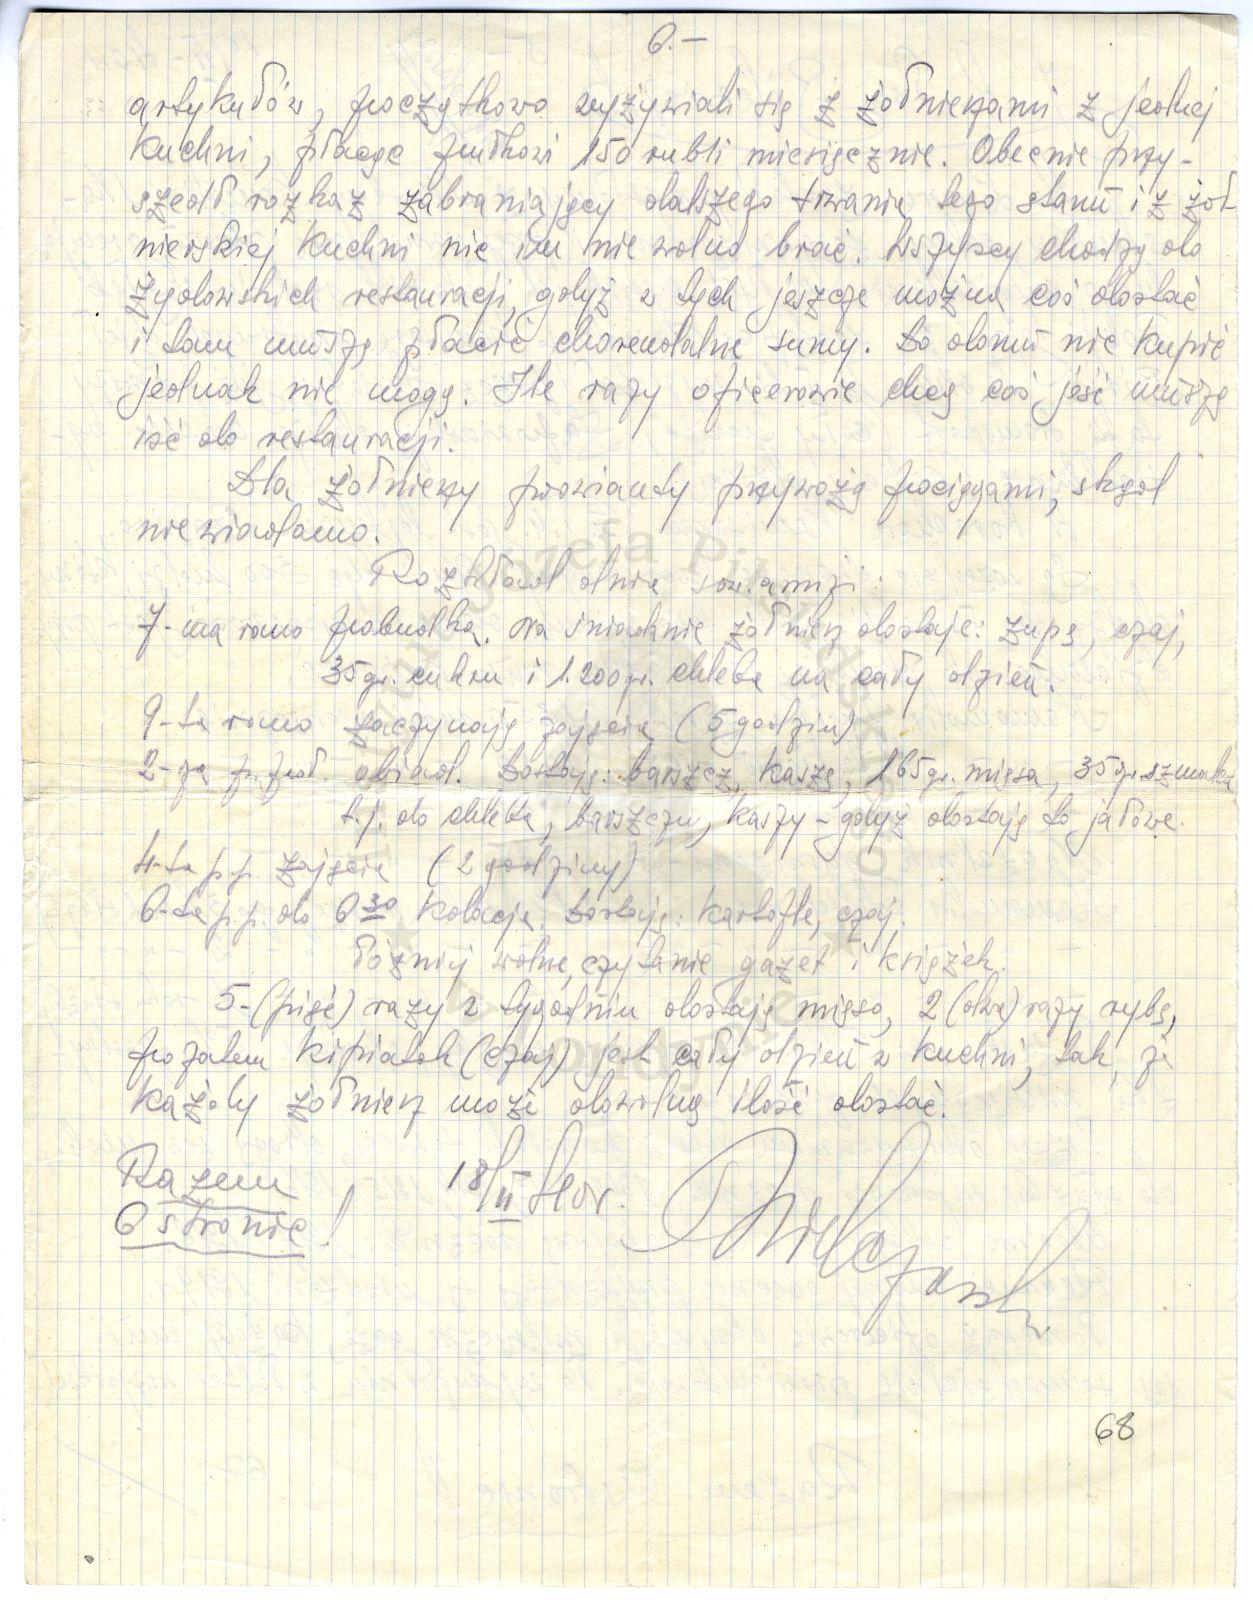 6.-
artykułów, początkowo wyżywiali się z żołnierzami z jednej
kuchni, płacąc pułkowi 150 rubli miesięcznie. Obecnie przy-
szedł rozkaz zabraniający dalszego trwania tego stanu i z żoł
nierskiej kuchni nic im nie wolno brać. Wszyscy chodzą do
żydowskich restauracji, gdyż w tych jeszcze można coś dostać
i tam muszą płacić horendalne sumy. Do domu nic kupić
jednak nie mogą. Ile razy oficerowie chcą coś jeść muszą
iść do restauracji.
Dla żołnierzy prowianty przywożą pociągami, skąd
nie wiadomo.
Rozkład dnia sow. armji:
7-ma rano pobudka. Na śniadanie żołnierz dostaje: zupę, czaj,
35 gr. cukru i 1.200 gr. chleba na cały dzień.
9-ta rano zaczynają zajęcia (5 godzin)
2-ga p. poł. obiad. Dostają: barszcz, kaszę, 165 gr. mięsa, 35 gr. szmalcu
t.j. do chleba, barszczu, kaszy - gdyż dostają to jałowe.
4-ta p.p. zajęcia (2 godziny)
6-ta p.p. do 6 30 kolacja. Dostają: kartofle, czaj.
Później wolne, czytanie gazet i książek.
5-(pięć) razy w tygodniu dostają mięso, 2 (dwa) razy rybę,
pozatem kipiatok (czaj) jest cały dzień w kuchni, tak, że
każdy żołnierz może dowolną ilość dostać.
Razem
6 stronic!
18/II
68
Józefa Piłsudskiego